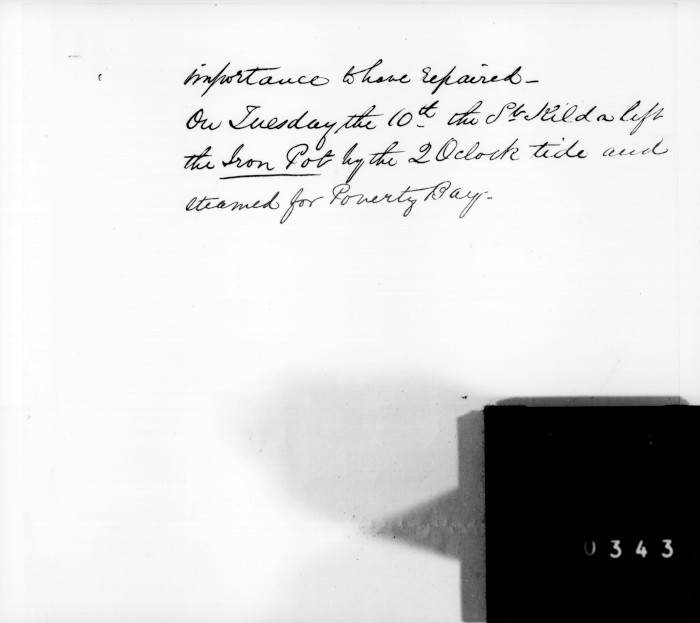 importance to have repaired -
On Tuesday the 10th the St Kilda left
the Iron Pot by the 2 Oclock tide and
steamed for Poverty Bay -
0343